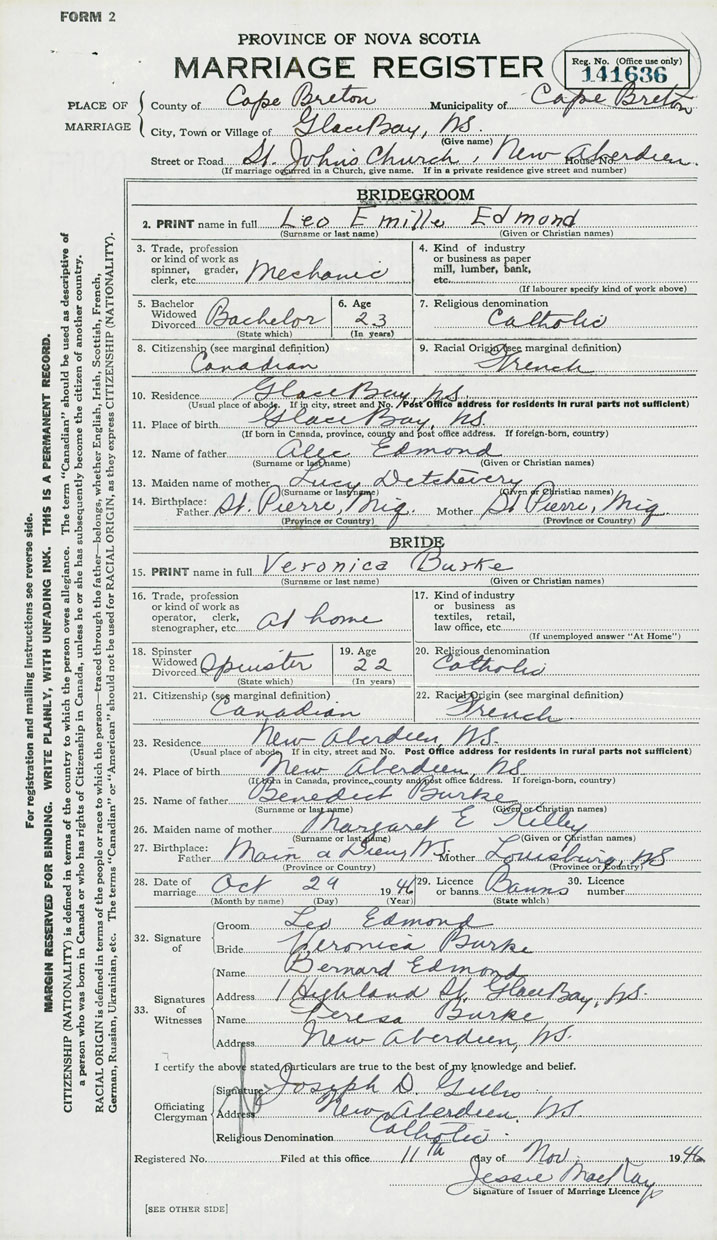 FORM 2
PROVINCE OF NOVA SCOTIA
MARRIAGE REGISTER
Reg. No. (Office use only)
141636
PLACE OF MARRIAGE
County of Cape Breton Municipality of Cape Breton
City, Town or Village of Glace Bay, NS.
(Give name)
Street or Road St. John's Church, New Aberdeen. House No.
(If marriage occurred in a Church, give name. If in a private residence give street and number)
BRIDEGROOM
2. PRINT name in full Leo Emille Edmond
(Surname or last name) (Given or Christian names)
3. Trade, profession or kind of work as spinner, grader, clerk, etc. Mechanic
4. Kind of industry or business as paper mill, lumber, bank, etc.
(If labourer specify kind of work above)
5. Bachelor Widowed Divorced Bachelor
(State which)
6. Age 23
(In years)
7. Religious denomination
Catholic
8. Citizenship (see marginal definition)
Canadian
9. Racial Origin (see marginal definition)
French
10. Residence Glace Bay, NS
(Usual place of abode. If in city, street and No. Post Office address for residents in rural parts not sufficient)
11. Place of birth Glace Bay, NS
(If born in Canada, province, county and post office address. If foreign-born, country)
12. Name of father Alec Edmond
(Surname or last name) (Given or Christian names)
13. Maiden name of mother Lucy Detchevery
(Surname or last name) (Given or Christian names)
14. Birthplace: Father St. Pierre, Miq. Mother St Pierre, Miq
(Province or Country) (Province or Country)
BRIDE
15. PRINT name in full Veronica Burke
(Surname or last name) (Given or Christian names)
16. Trade, profession or kind of work as operator, clerk, stenographer, etc. at home
17. Kind of industry or business as textiles, retail, law office, etc.
(If unemployed answer "At Home")
18. Spinster Widowed Divorced Spinster
(State which)
19. Age 22
(In years)
20. Religious denomination
Catholic
21. Citizenship (see marginal definition)
Canadian
22. Racial Origin (see marginal definition)
French
23. Residence New Aberdeen, NS.
(Usual place of abode. If in city, street and No. Post Office address for residents in rural parts not sufficient)
24. Place of birth New Aberdeen, NS
(If born in Canada, province, county and post office address. If foreign-born, country)
25. Name of father Benedict Burke
(Surname or last name) (Given or Christian names)
26. Maiden name of mother Margaret E Kelley
(Surname or last name) (Given or Christian names)
27. Birthplace: Father Main a Dieu, NS Mother Louisburg, NS
(Province or Country) (Province or Country)
28. Date of marriage Oct 29 1946
(Month by name) (Day) (Year)
29. Licence or banns Banns
(State which)
30. Licence number
32. Signature of
Groom Leo Edmond
Bride Veronica Burke
33. Signatures of Witnesses
Name Bernard Edmond
Address 1 Highland St. Glace Bay, NS.
Name Teresa Burke
Address New Aberdeen, NS.
I certify the above stated particulars are true to the best of my knowledge and belief.
Officiating Clergyman
Signature Joseph D. Gillis
Address New Aberdeen. NS
Religious Denomination Catholic.
Registered No. Filed at this office 11th day of Nov 1946
Jessie MacKay
Signature of Issuer of Marriage Licence
[SEE OTHER SIDE]
For registration and mailing instructions see reverse side.
MARGIN RESERVED FOR BINDING. WRITE PLAINLY, WITH UNFADING INK. THIS IS A PERMANENT RECORD.
CITIZENSHIP (NATIONALITY) is defined in terms of the country to which the person owes allegiance. The term "Canadian" should be used as descriptive of
a person who was born in Canada or who has rights of Citizenship in Canada, unless he or she has subsequently become the citizen of another country.
RACIAL ORIGIN is defined in terms of the people or race to which the person—traced through the father—belongs, whether English, Irish, Scottish, French,
German, Russian, Ukrainian, etc. The terms "Canadian" or "American" should not be used for RACIAL ORIGIN, as they express CITIZENSHIP (NATIONALITY).